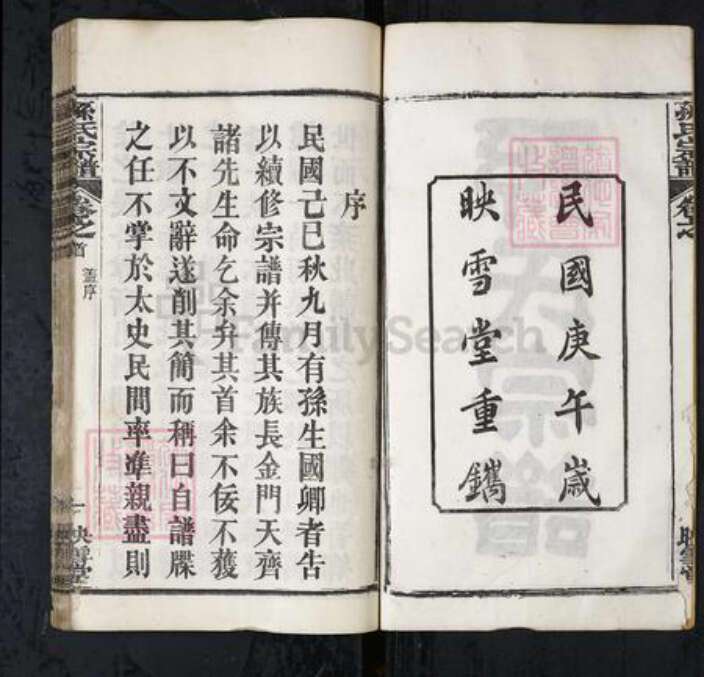 孫氏宗譜
卷之
映雪堂
民國庚午歲
映雪堂重鐫
序
民國己巳秋九月有孫生國卿者告
以續修宗譜并傳其族長金門天齊
諸先生命乞余弁其首余不佞不獲
以不文辭遂削其簡而稱曰自譜牒
之任不掌於太史民間率準親盡則
孫氏宗譜
卷之首
蓋序
一
映雪堂
FamilySearch